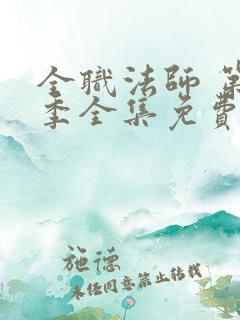 全職法師 第
季全集免費
施德
未任同意禁止转载